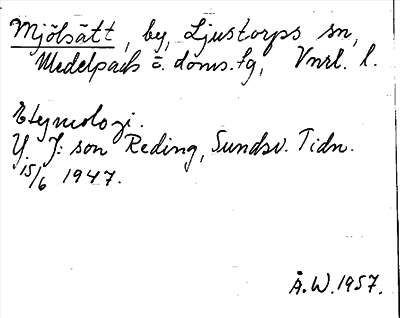 Mjölsätt, by, Ljustorps sn,
Medelpads ö. doms.tg, Vnrl. l.
Etymologi.
Y. J:son Reding, Sundsv. Tidn.
15/6 1947.
Å.W.1957.